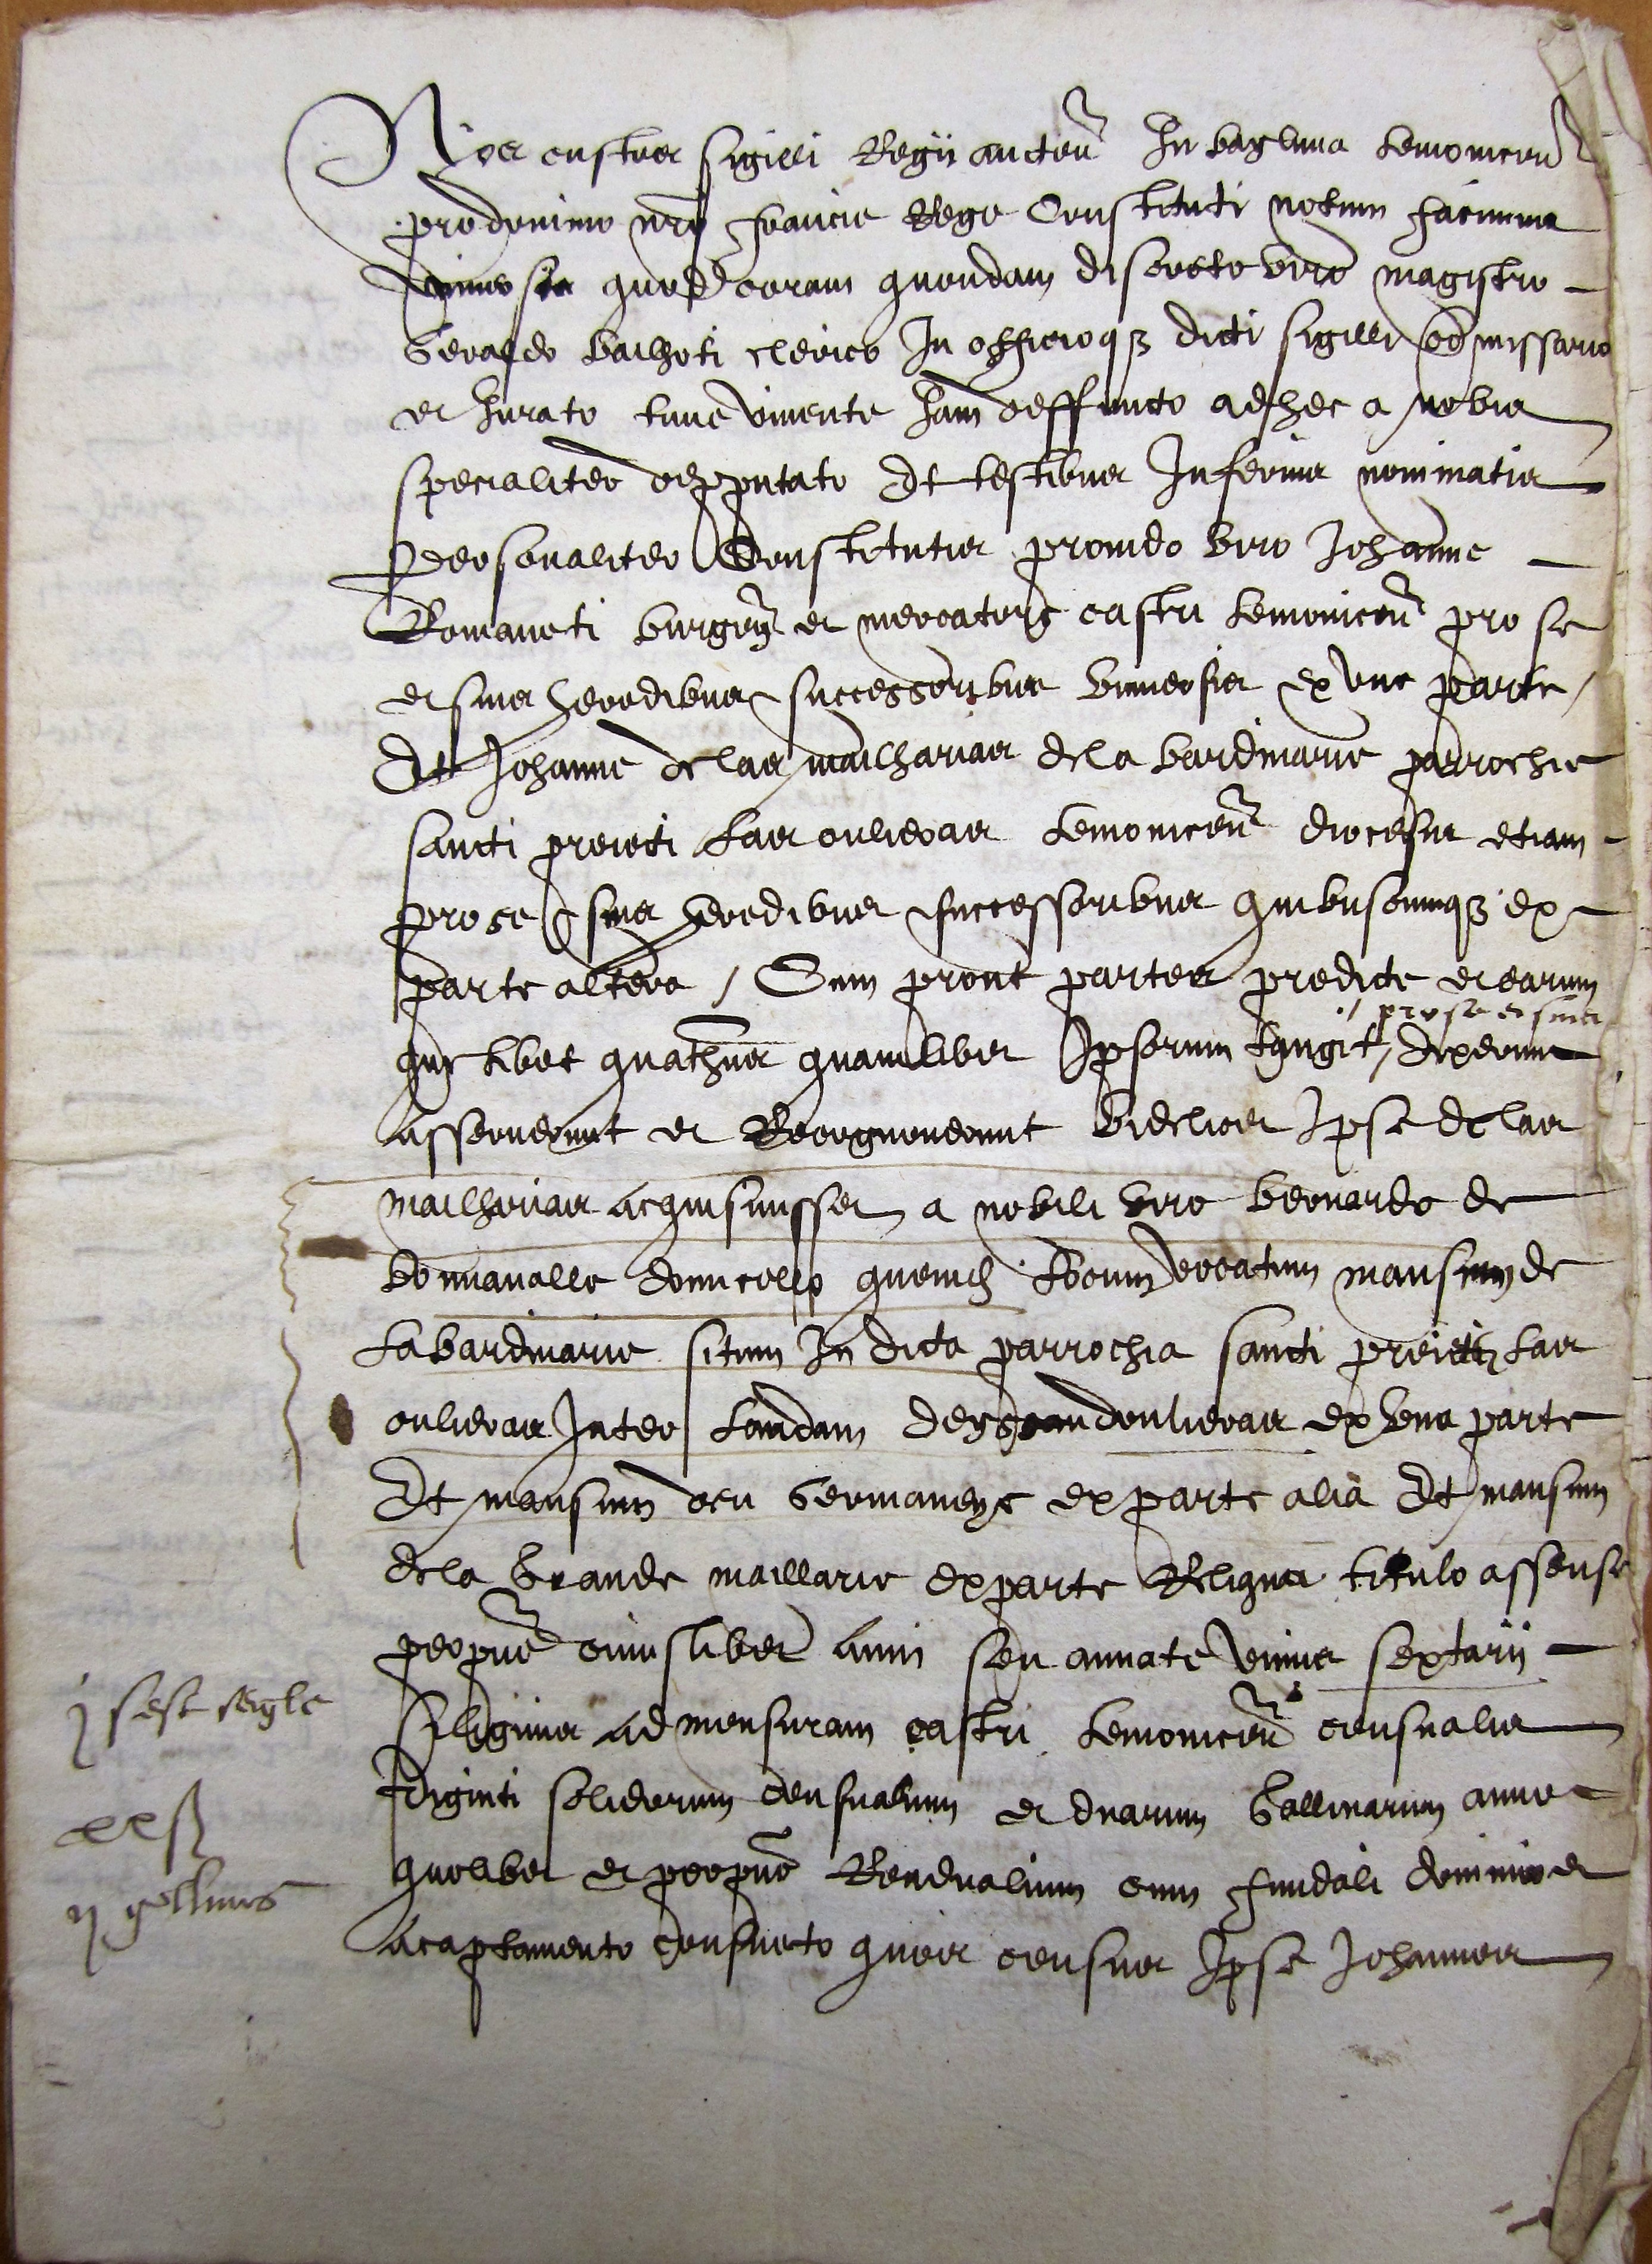 Nos custos sigilli Regii auctenˢ In baylivia Lemovicenˢ
pro domino nrō francie Rege Constituti notum facimus
universis quod coram quondam discreto viro magistro
Geraldo balhoti clerico In officioqȝ dicti sigilli comissario
et Jurato tunc vivente Jam deffuncto ad hec a nobis
specialiter depputato Et testibus Inferius nominatis
Personaliter Constitutis provido viro Johanne
Romaneti burgen et mercatore castri Lemovicenˢ pro se
et suis heredibus et successoribus universis ex una parte /
Et Johanne de las mailharias de la bardinarie parrochie
sancti preiecti Las oulieras Lemovicenˢ diocesis etiam
pro se et suis heredibus et successoribus quibuscumqȝ ex
parte altera / Cum prout partes predicte et earum
// pro se et suis
que libet quathus quamlibet Ipsorum tangit / dixerunt
asseruerunt et Recognoverunt videlicet Ipse de las
mailharias acquisivisset a nobili viro bernardo de
bonnavalle domicello quemd Locum vocatum mansum de
La bardinarie situm In dicta parrochia sancti preiecti Las
oulieras Inter Landam deyssandoulieras ex una parte
Et mansum deu Germaneys ex parte alia Et mansum
de la Grande maillarie ex parte Reliqua titulo assense
perpue cuiuslibet Anni seu annate unius sextarii
siliginis ad mensuram castri Lemovicenˢ censualis
viginti solidorum censualium et duarum Gallinarum anno
quolibet et perpuo Rendualium cum fundali dominio et
acaptamento consueto quos census Ipse Johannes
j sest seigle
xxß
ij gellines